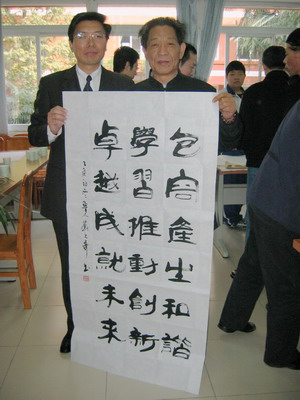 包容產生和諧
學習推動創新
卓越成就未來